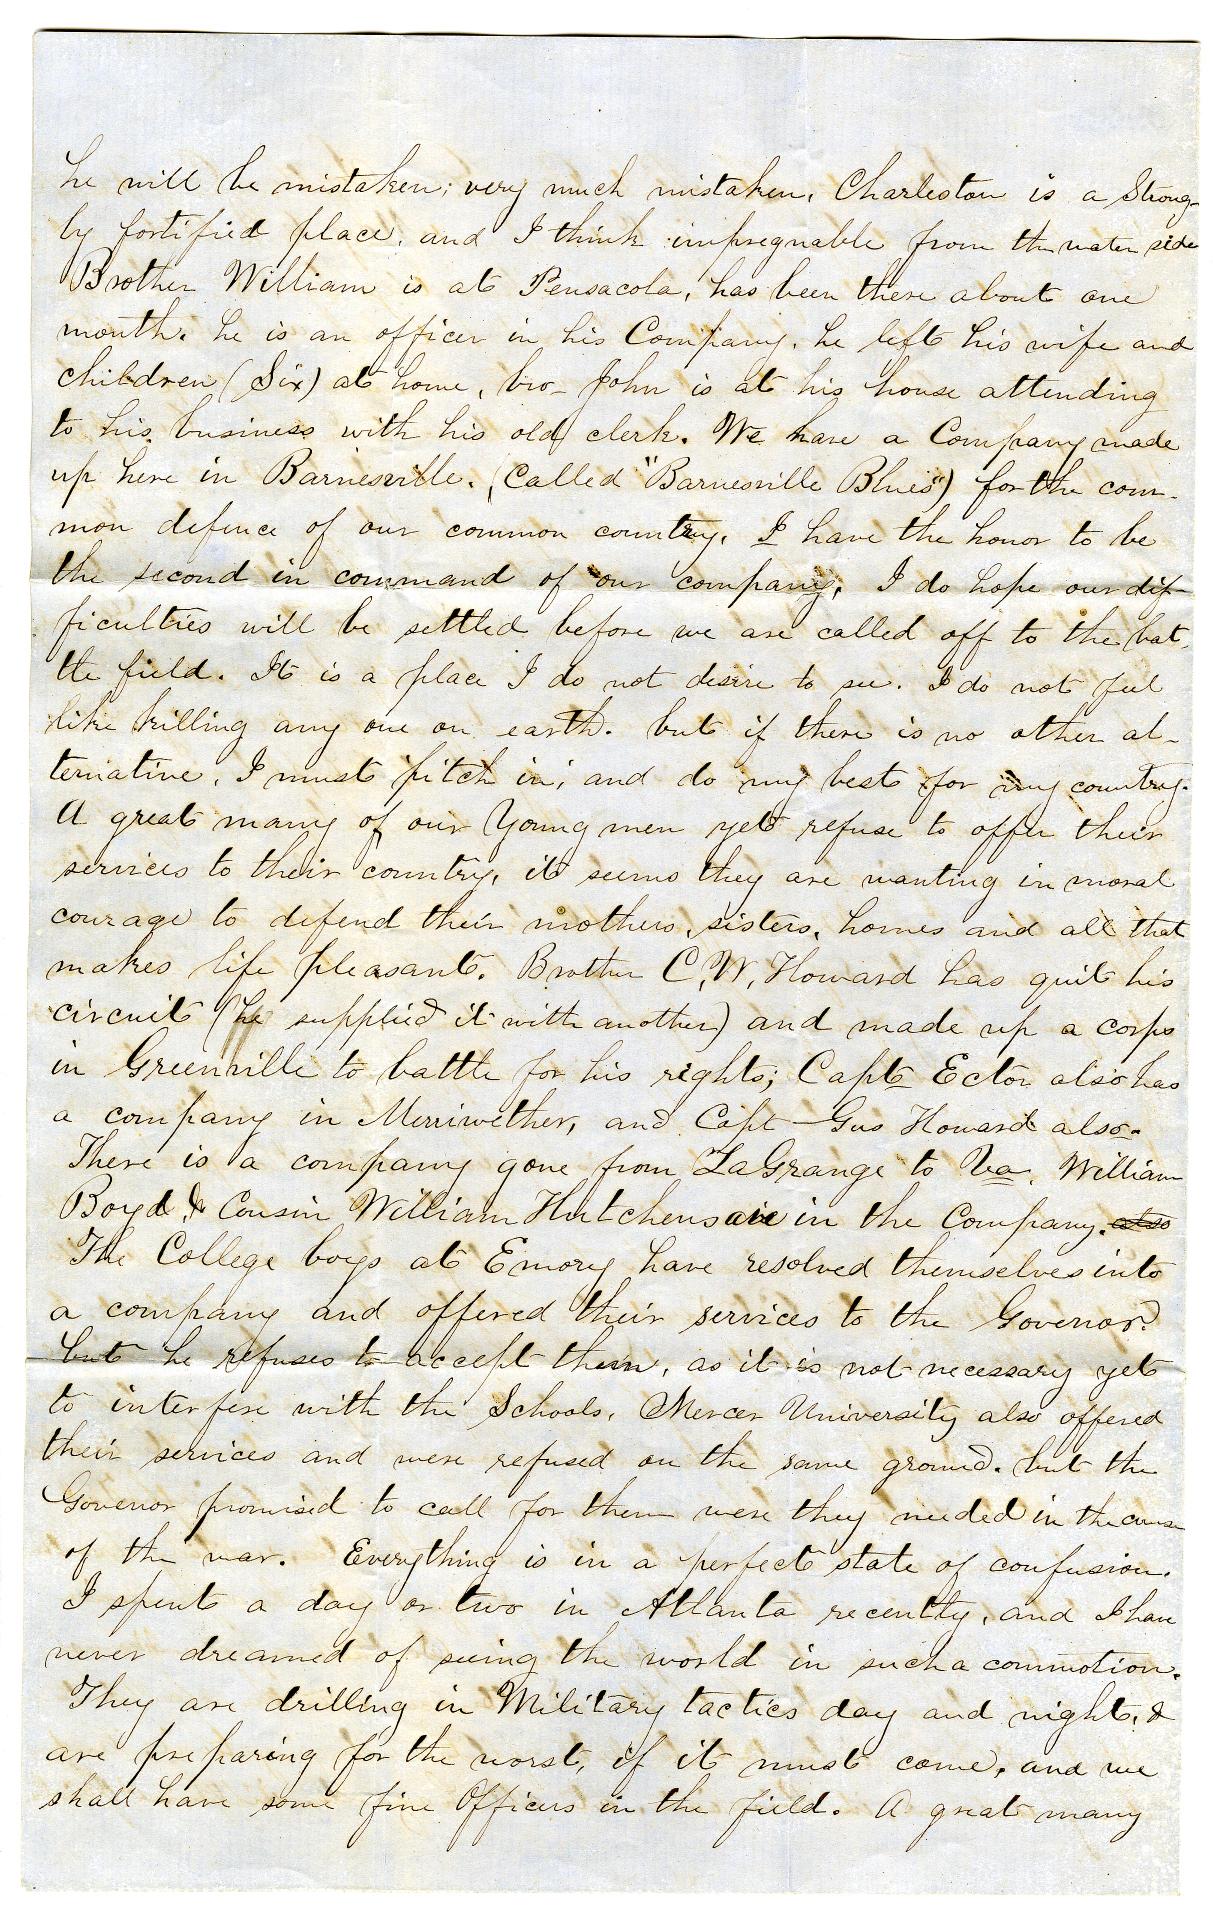 he will be mistaken; very much mistaken. Charleston is a Strong-
ly fortified place. and I think impregnable from the water side
Brother William is at Pensacola, has been there about one
month. he is an officer in his Company. he left his wife and
children (Six) at home, bro- John is at his house attending
to his business with his old clerk. We have a Company made
up here in Barnesville. (Called "Barnesville Blues") for the com-
mon defence of our common country. I have the honor to be
the second in command of our company. I do hope our dif-
ficulties will be settled before we are called off to the bat-
tle field. It is a place I do not desire to see. I do not feel
like killing any one on earth. but if there is no other al-
ternative, I must pitch in, and do my best for my country.
A great many of our Young men yet refuse to offer their
services to their country, it seems they are wanting in moral
courage to defend their mothers, sisters, homes and all that
makes life pleasant. Brother C. W. Howard has quit his
circuit (he supplied it with another) and made up a corps
in Greenville to battle for his rights; Capt Ector also has
a company in Merriwether, and Capt Gus Howard also.
There is a company gone from LaGrange to Va. William
Boyd & Cousin William Hutchens are in the Company. also
The College boys at Emory have resolved themselves into
a company and offered their services to the Govenor.
but he refuses to accept them, as it is not necessary yet
to interfere with the Schools. Mercer University also offered
their services and were refused on the same ground. but the
Govenor promised to call for them were they needed in the course
of the war. Everything is in a perfect state of confusion.
I spent a day or two in Atlanta recently, and I have
never dreamed of seeing the world in such a commotion.
They are drilling in Military tactics day and night, &
are preparing for the worst, if it must come, and we
shall have some fine Officers in the field. A great many